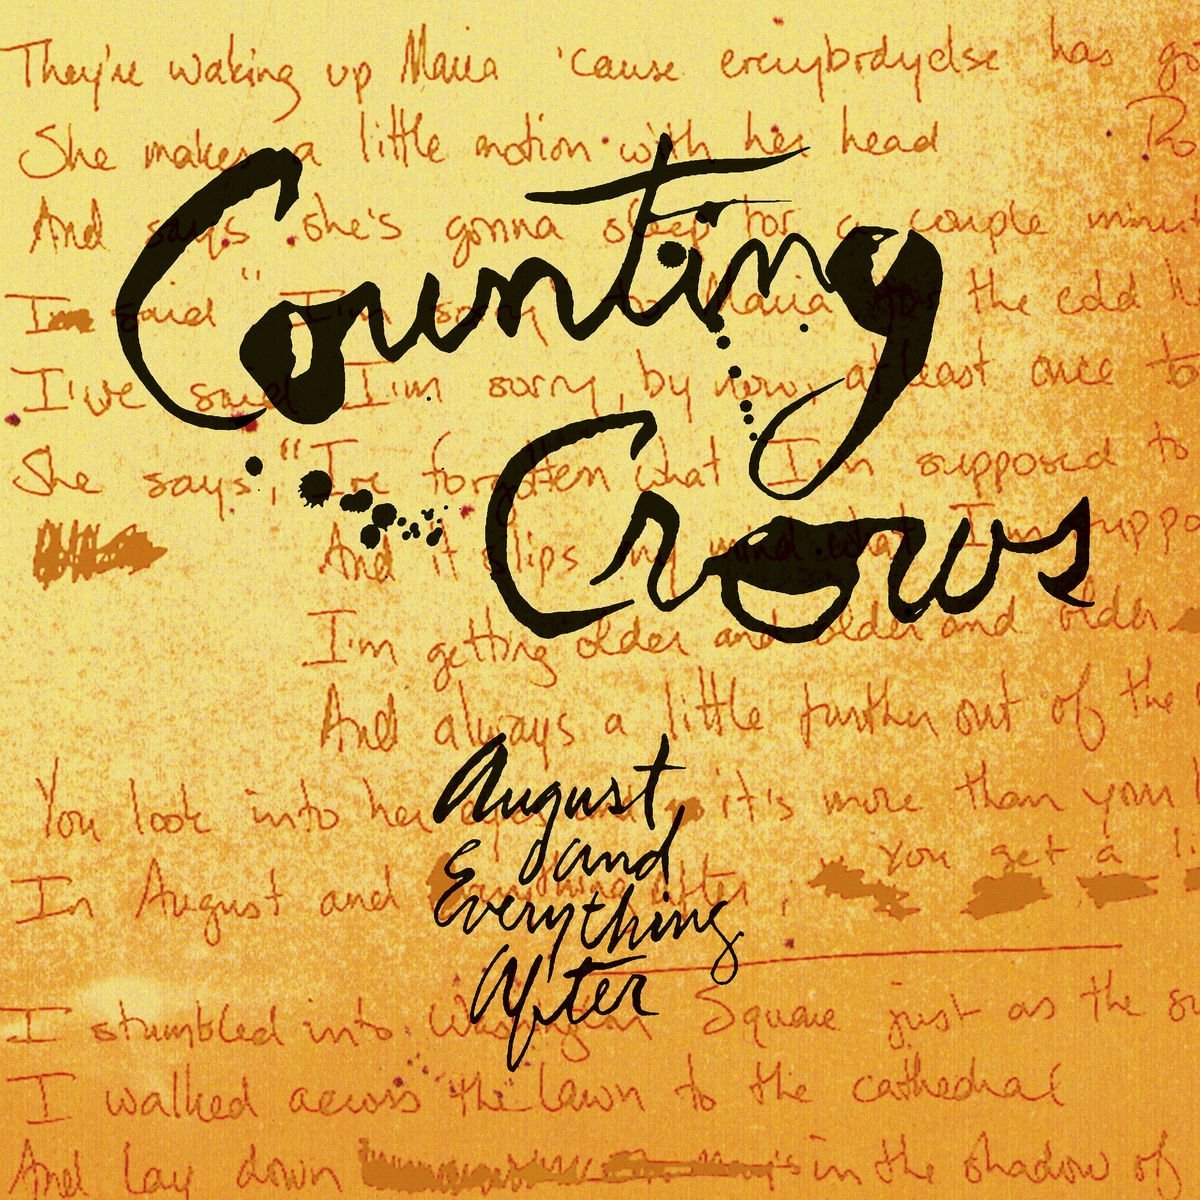 They're waking up Maria 'cause everybodyelse has go
She makes a little motion with her head
Ro
And says she's gonna sleep for a couple minu
Counting
I'm said "I'm sorry to Maria for the cold
I've said I'm sorry, by now, at least once to
She says, "I've forgotten what I'm supposed to
Crows
And it slips my mind what I'm suppo
I'm getting older and older and older
And always a little further out of the
August
You look into her eyes it's more than your
and
You get a li
In August and Everything After,
Everything
After
I stumbled into Washington Square just as the su
I walked across the lawn to the cathedral
And lay down in the shadow of